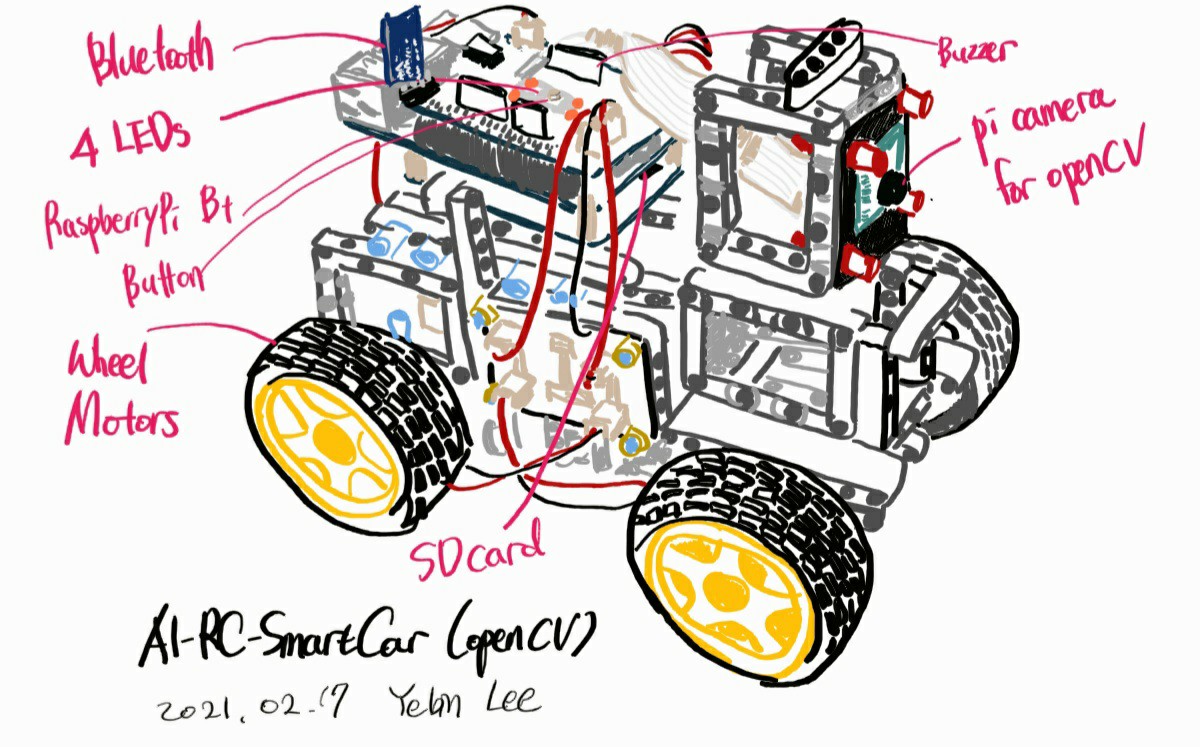 Bluetooth
4 LEDs
RaspberryPi Bt
Button
Wheel
Motors
Buzzer
pi camera
for openCV
SD card
AI-RC-SmartCar (openCV)
2021.02.17 Lee